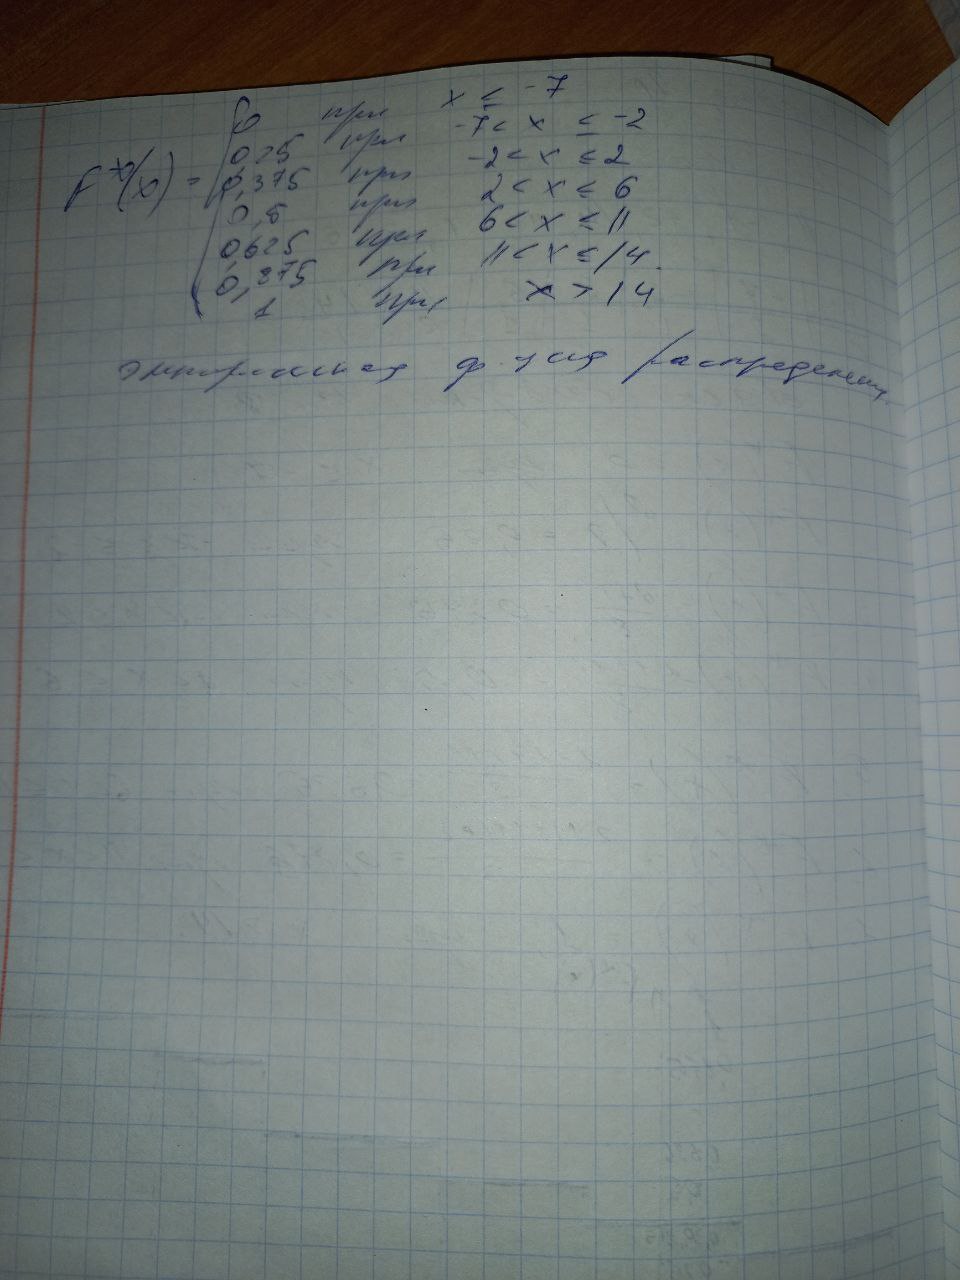 0 при x ≤ -7
0,25 при -7 < x ≤ -2
F*(x) = 0,375 при -2 < x ≤ 2
0,5 при 2 < x ≤ 6
0,625 при 6 < x ≤ 11
0,875 при 11 < x ≤ 14
1 при x > 14
эмпирическая ф-ция распределения